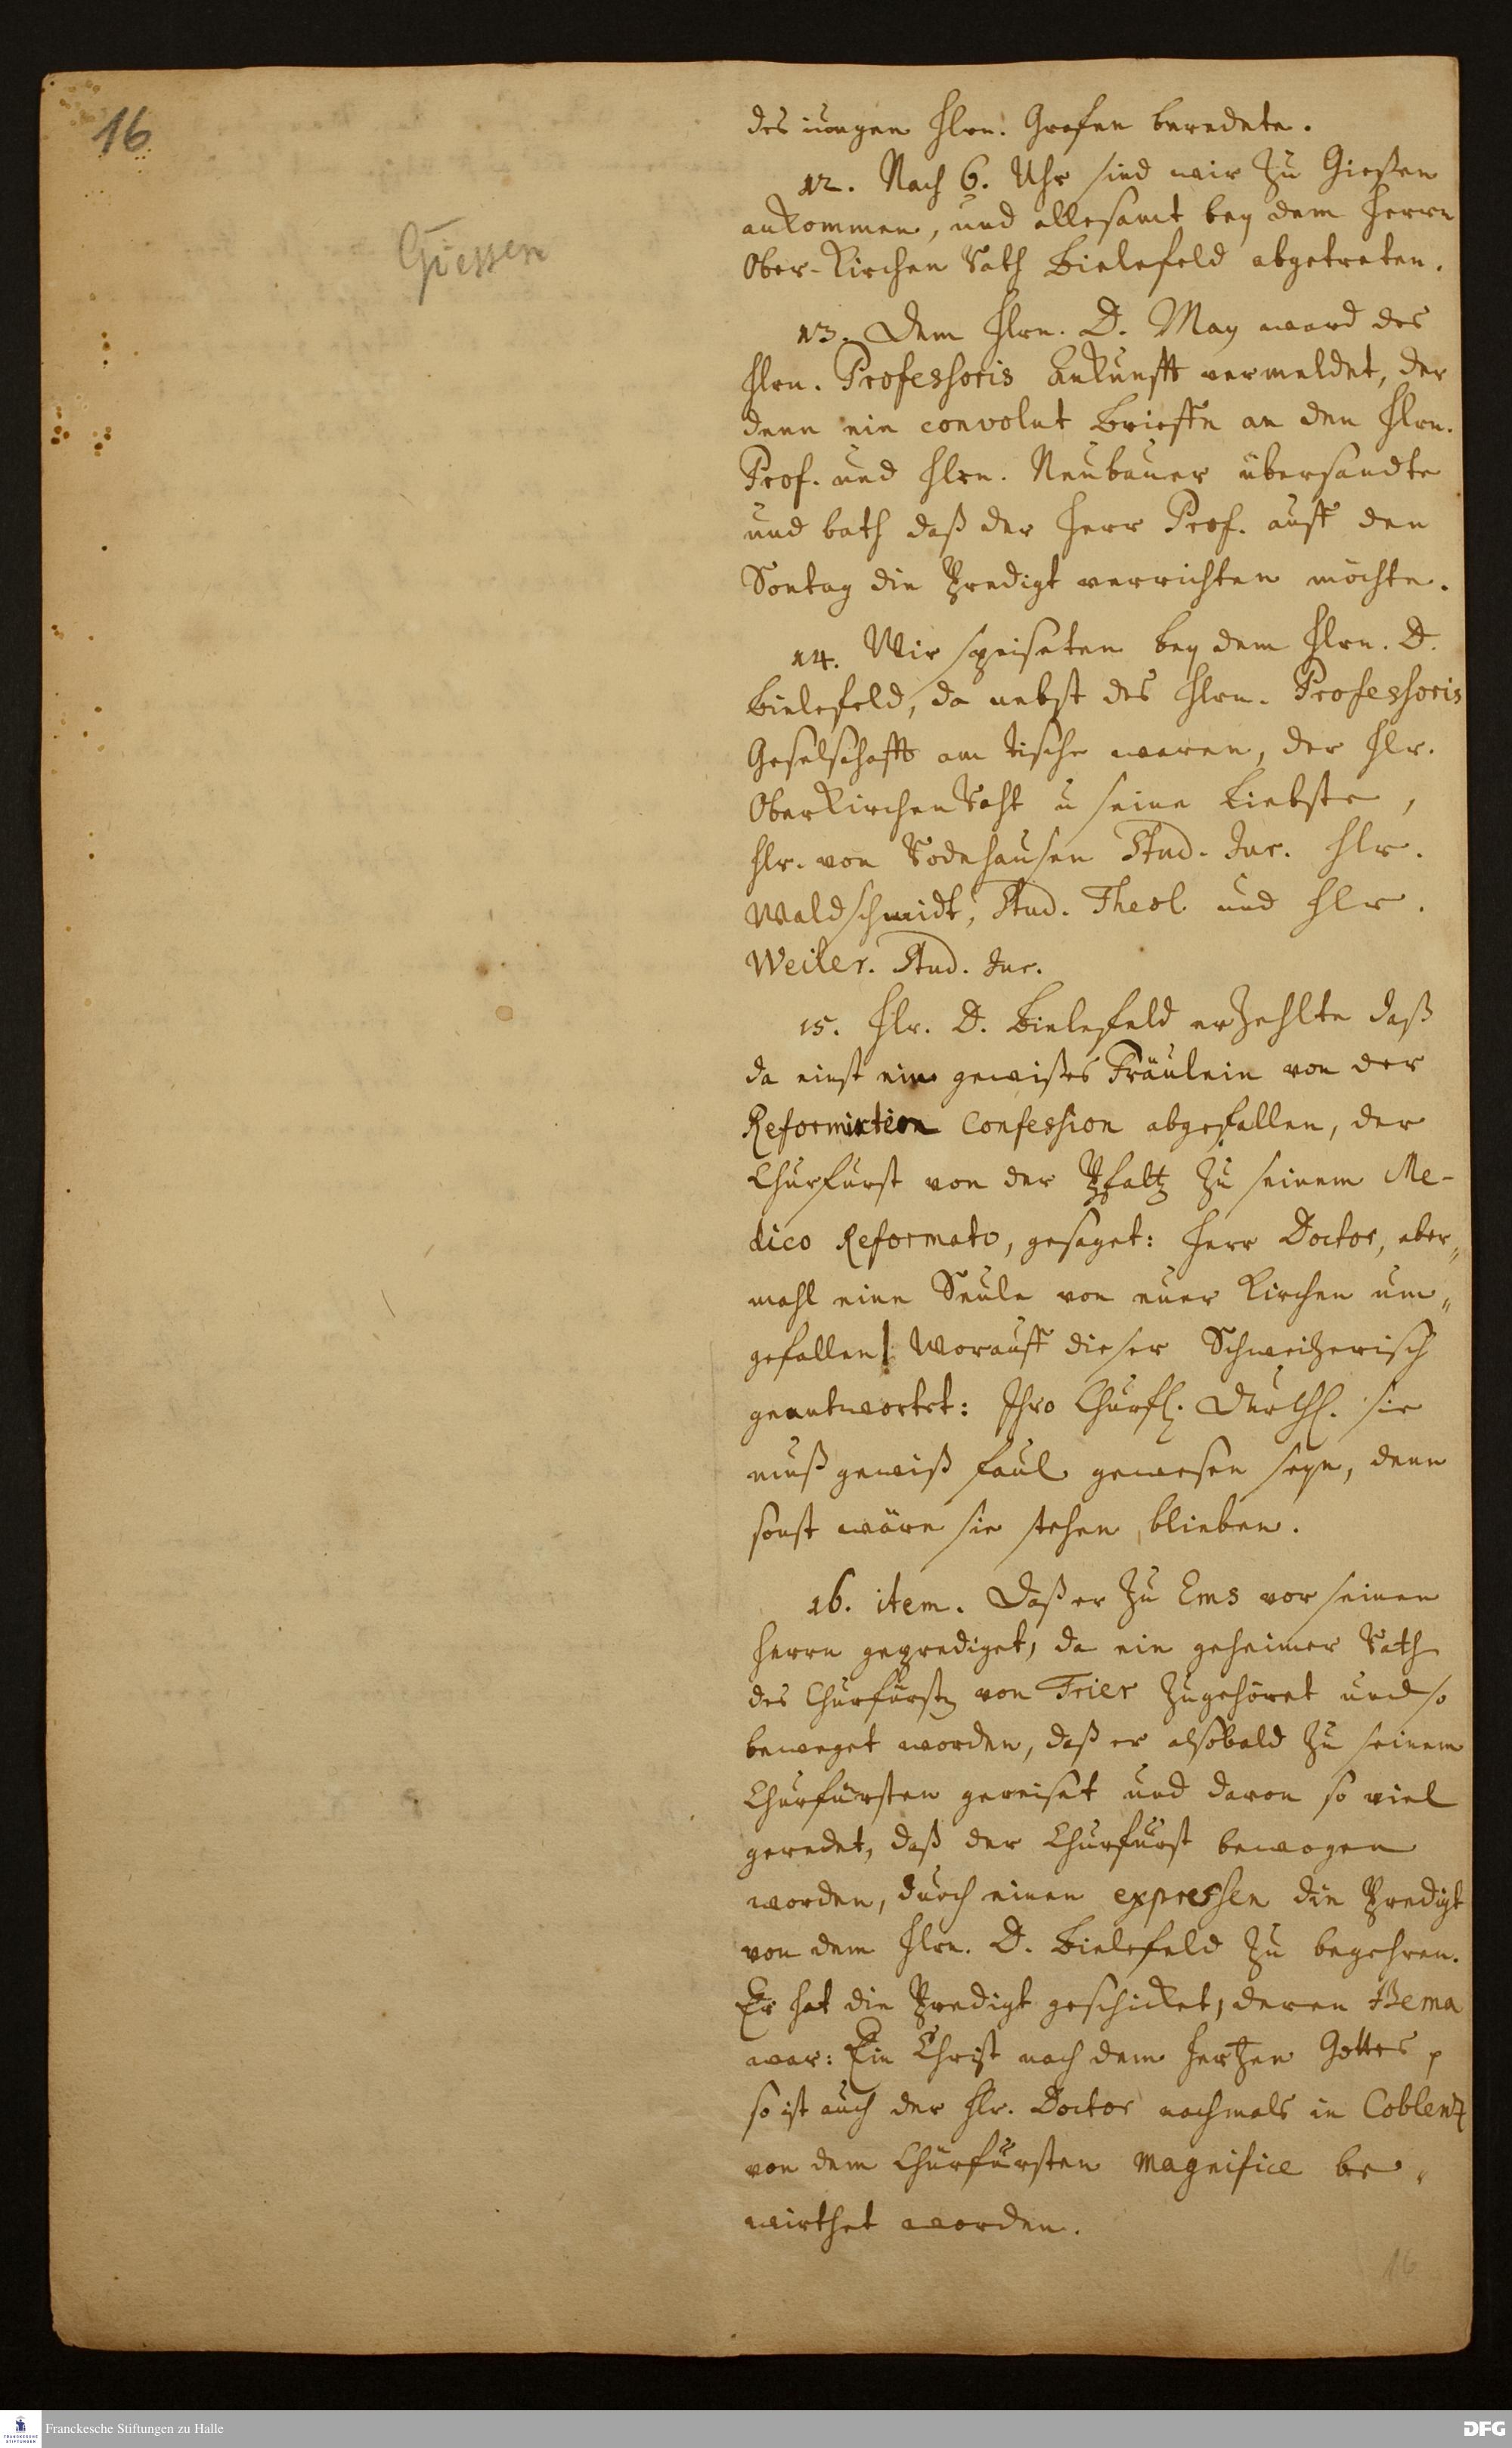 16
Giessen
des iungen Hrn. Grafen beredete.
12. Nach 6. Uhr sind wir zu Gießen
ankommen, und allesamt bey dem Herrn
Ober-Kirchen Rath Bielefeld abgetreten.
13. Dem Hrn. D. May ward des
Hrn. Professoris Ankunfft vermeldet, der
denn ein convolut Brieffe an den Hrn.
Prof. und Hrn. Neubauer übersandte
und bath daß der Herr Prof. auff den
Sontag die Predigt verrichten möchte.
14. Wir speiseten bey dem Hrn. D.
Bielefeld, da nebst des Hrn. Professoris
Geselschafft am tische waren, der Hr.
OberKirchenRaht u seine Liebste,
Hr. von Rodehausen Stud. Jur. Hr.
Waldschmidt, Stud. Theol. und Hr.
Weiler. Stud. Jur.
15. Hr. D. Bielefeld erzehlte daß
da einst ein gewißes Fräulein von der
Confession abgefallen, der
Churfürst von der Pfaltz zu seinem Me-
dico Reformato, gesaget: Herr Doctor, aber„
mahl eine Seule von euer Kirchen um„
gefallen! Worauff dieser Schweitzerisch
geantwortet: Ihro Churfl. Durchl. sie
muß gewiß faul gewesen seyn, denn
sonst wäre sie stehen blieben.
16. item. Daß er zu Ems vor seinen
Herrn geprediget, da ein geheimer Rath
des Churfürsten von Trier zugehöret und so
beweget worden, daß er alsobald zu seinem
Churfürsten gereiset und davon so viel
geredet, daß der Churfürst bewogen
worden, durch einen expressen die Predigt
von dem Hrn. D. Bielefeld zu begehren.
Er hat die Predigt geschicket, deren thema
war: Ein Christ nach dem Hertzen Gottes,
so ist auch der Hr. Doctor nachmals in Coblentz
von dem Churfürsten magnifice be„
wirthet worden.
16
Franckesche Stiftungen zu Halle
DFG